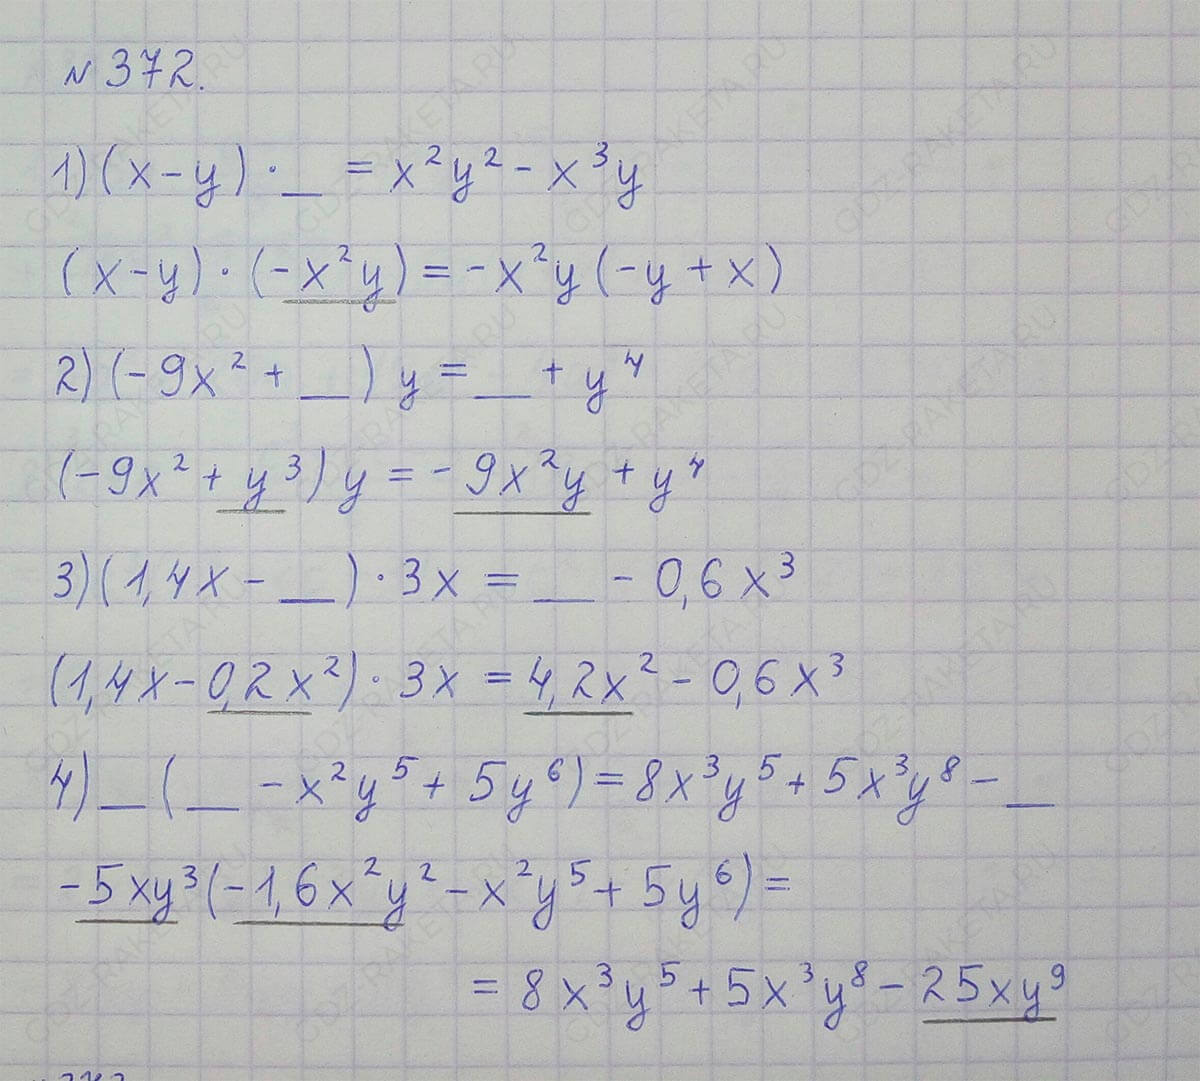 № 372.
1) (x - y) · __ = x²y² - x³y
(x - y) · (-x²y) = -x²y (-y + x)
2) (-9x² + __) y = __ + y⁴
(-9x² + y³) y = -9x²y + y⁴
3) (1,4x - __) · 3x = __ - 0,6x³
(1,4x - 0,2x²) · 3x = 4,2x² - 0,6x³
4) __ (__ - x²y⁵ + 5y⁶) = 8x³y⁵ + 5x³y⁸ - __
-5xy³ (-1,6x²y² - x²y⁵ + 5y⁶) =
= 8x³y⁵ + 5x³y⁸ - 25xy⁹
GDZ-RAKETA.RU